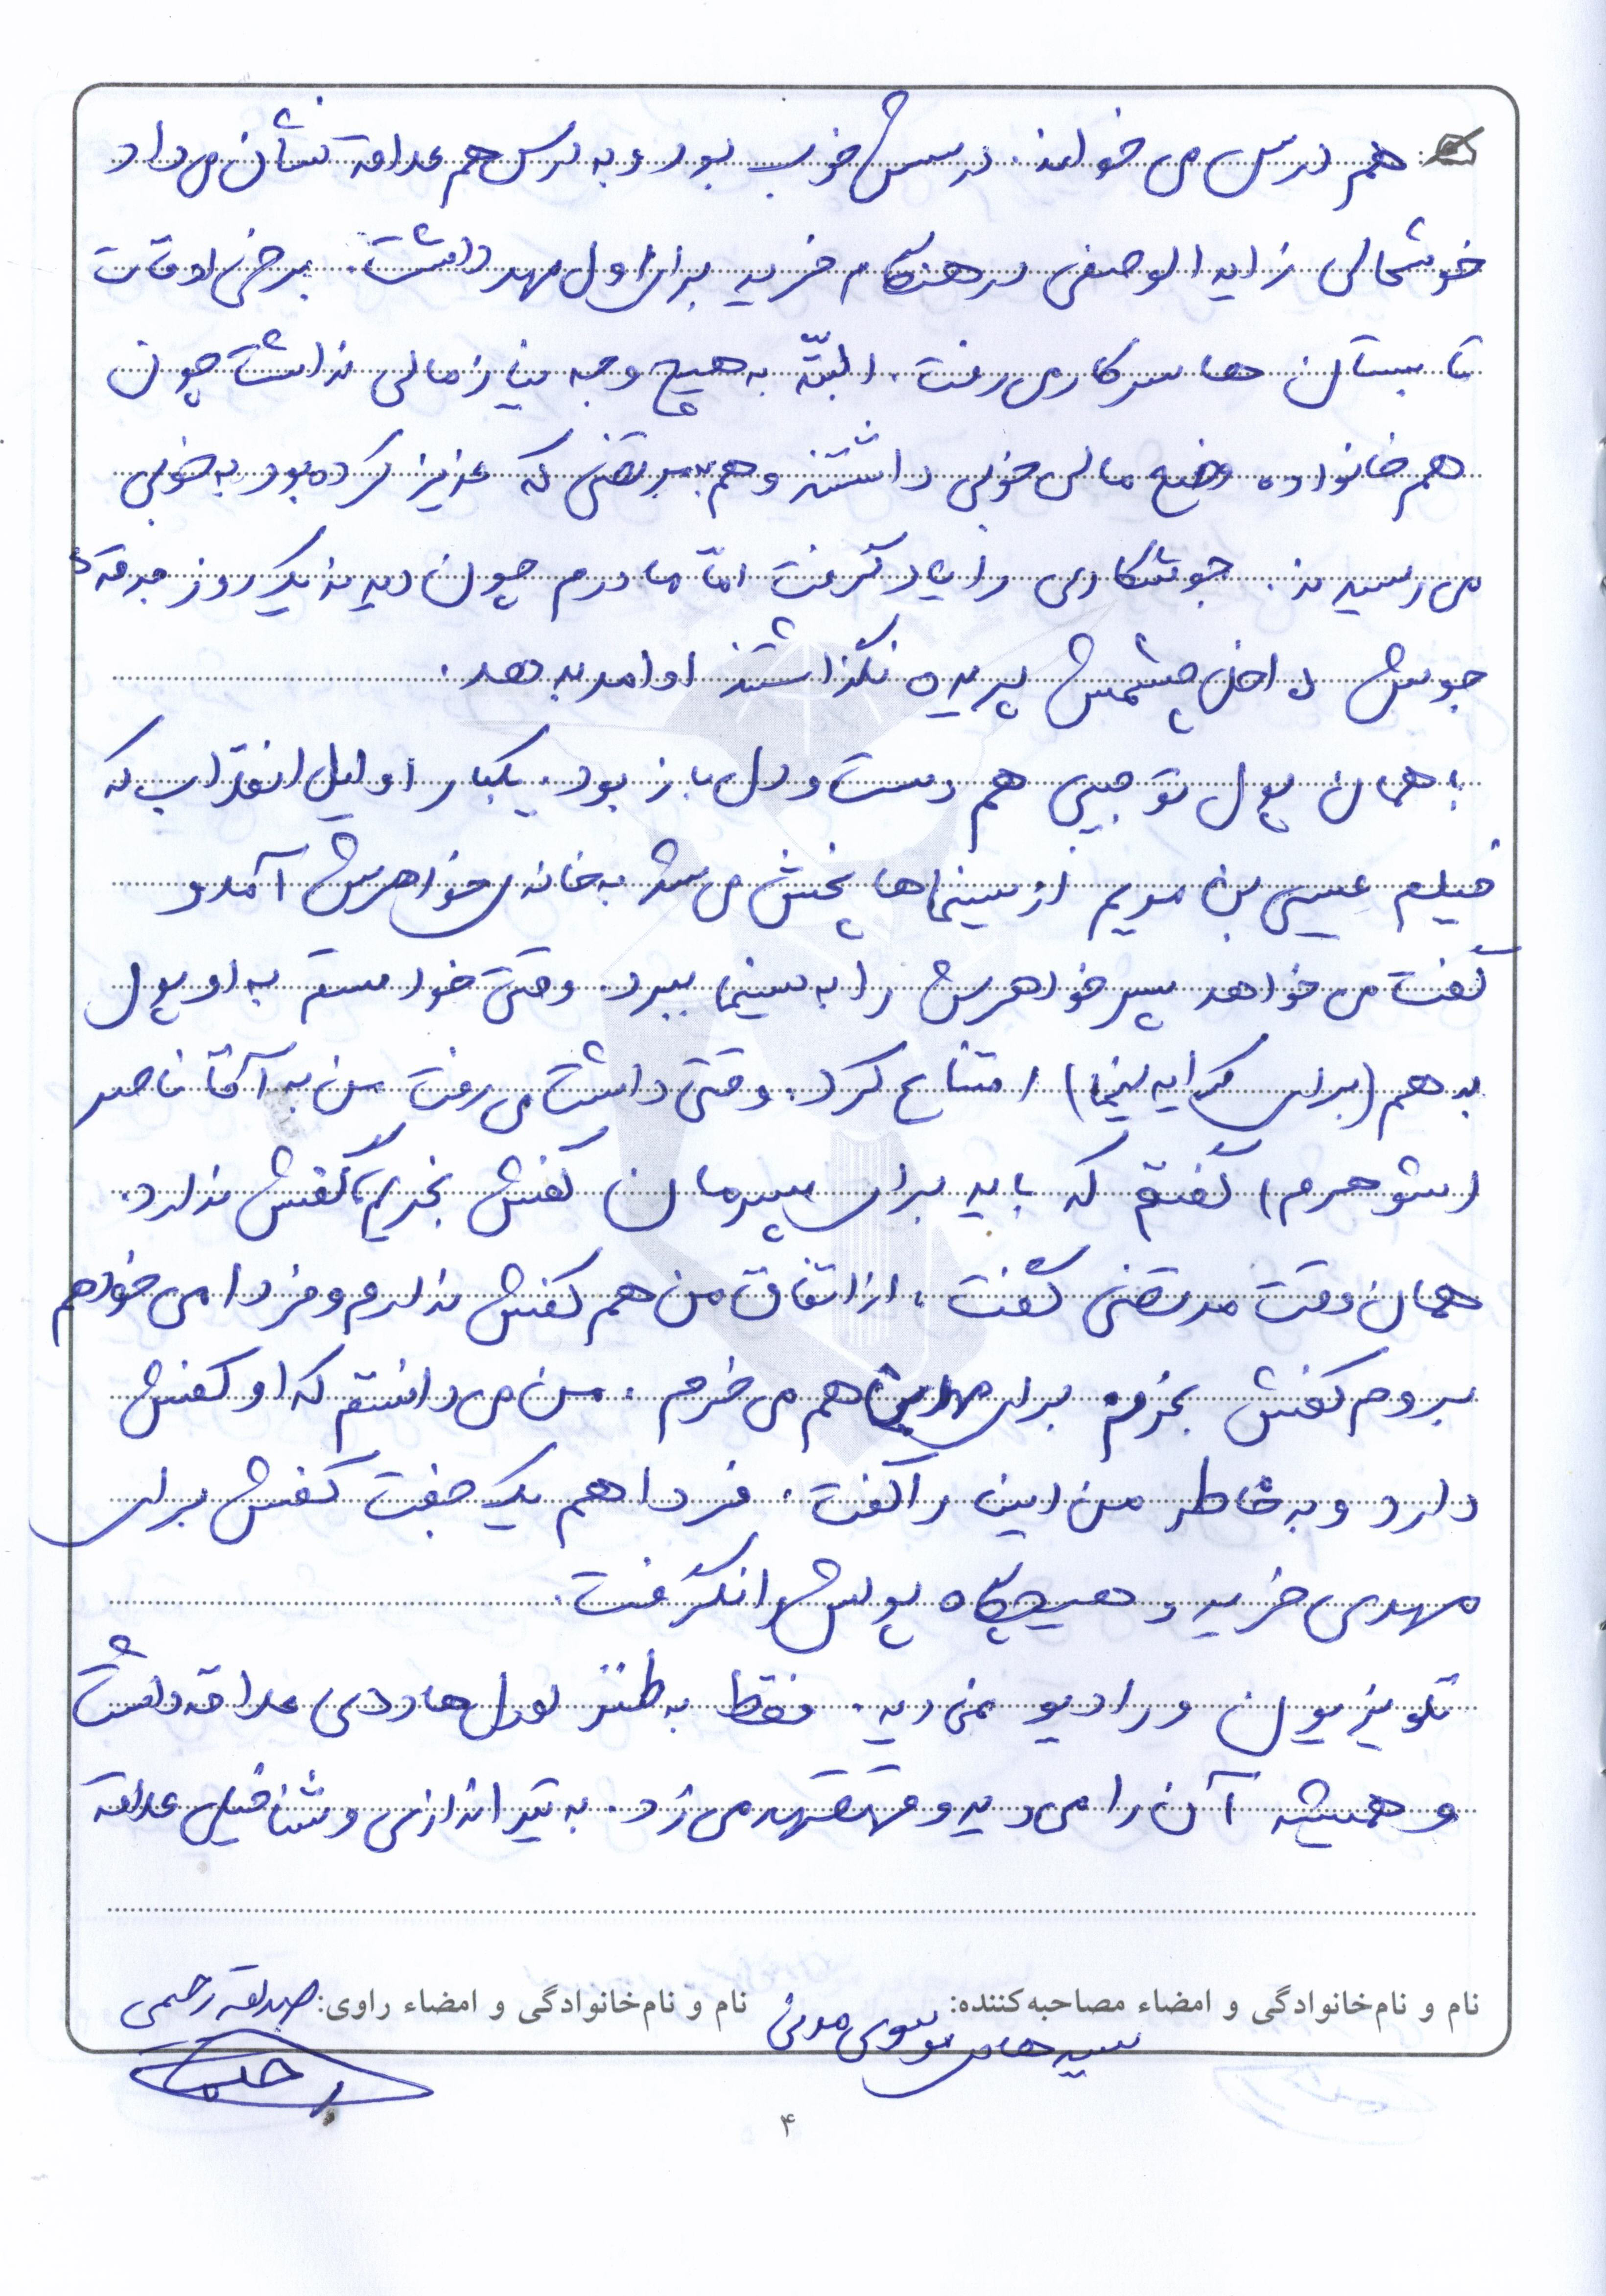 هم درس می خواند. درسش خوب بود و به درس هم علاقه نشان می داد
خوشحالی زاید الوصفی در هنگام خرید برای اول مهر داشت. برخی اوقات
تابستان ها سر کار می رفت. البتّه به هیچ وجه نیاز مالی نداشت چون
هم خانواده وضع مالی خوبی داشتند و هم به مرتضی که عزیز کرده بود به خوبی
می رسیدند. جوشکاری را یاد گرفت امّا مادرم چون دیدند یک روز جرقهٔ
جوش داخل چشمش پریده نگذاشتند ادامه بدهد.
با همان پول توجیبی هم دست و دل باز بود. یکبار اوایل انقلاب که
فیلم عیسی بن مریم از سینماها پخش می شد به خانه ی خواهرش آمد و
گفت می خواهد پسر خواهرش را به سینما ببرد. وقتی خواستم به او پول
بدهم (برای کرایه سینما) امتناع کرد. وقتی داشت می رفت من به آقا ناصر
(شوهرم) گفتم که باید برای پسرمان کفش بخریم، کفش ندارد.
همان وقت مرتضی گفت، از اتفاق من هم کفش ندارم و فردا می خواهم
بروم کفش بخرم برای مهدی هم می خرم. من می دانستم که او کفش
دارد و به خاطر من این را گفت. فردا هم یک جفت کفش برای
مهدی خرید و هیچگاه پولش را نگرفت.
تلویزیون و رادیو نمی دید. فقط به طنز لورل هاردی علاقه داشت
و همیشه آن را می دید و قهقهه می زد. به تیراندازی و شنا خیلی علاقه
نام و نام‌خانوادگی و امضاء مصاحبه‌کننده: سید هادی موسوی مدنی
نام و نام‌خانوادگی و امضاء راوی: صدیقه رحیمی
۴